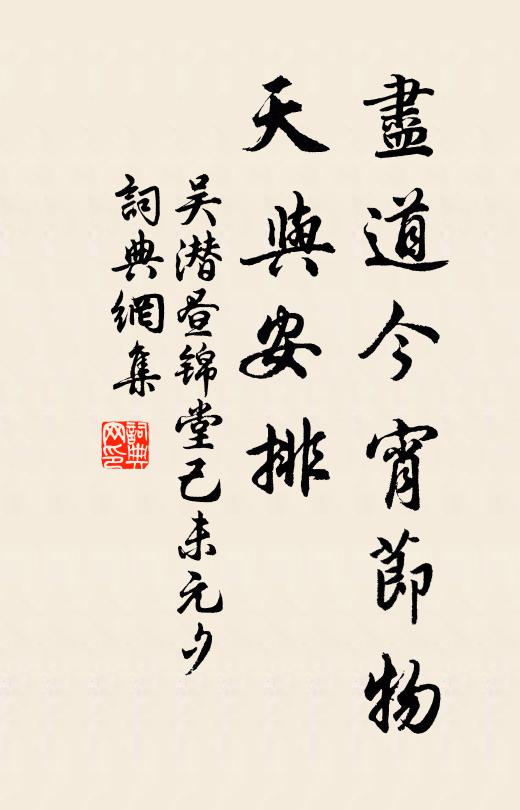 盡道今宵節物
天與安排
吴潜昼锦堂己未元夕
詞典網集
詞典网印